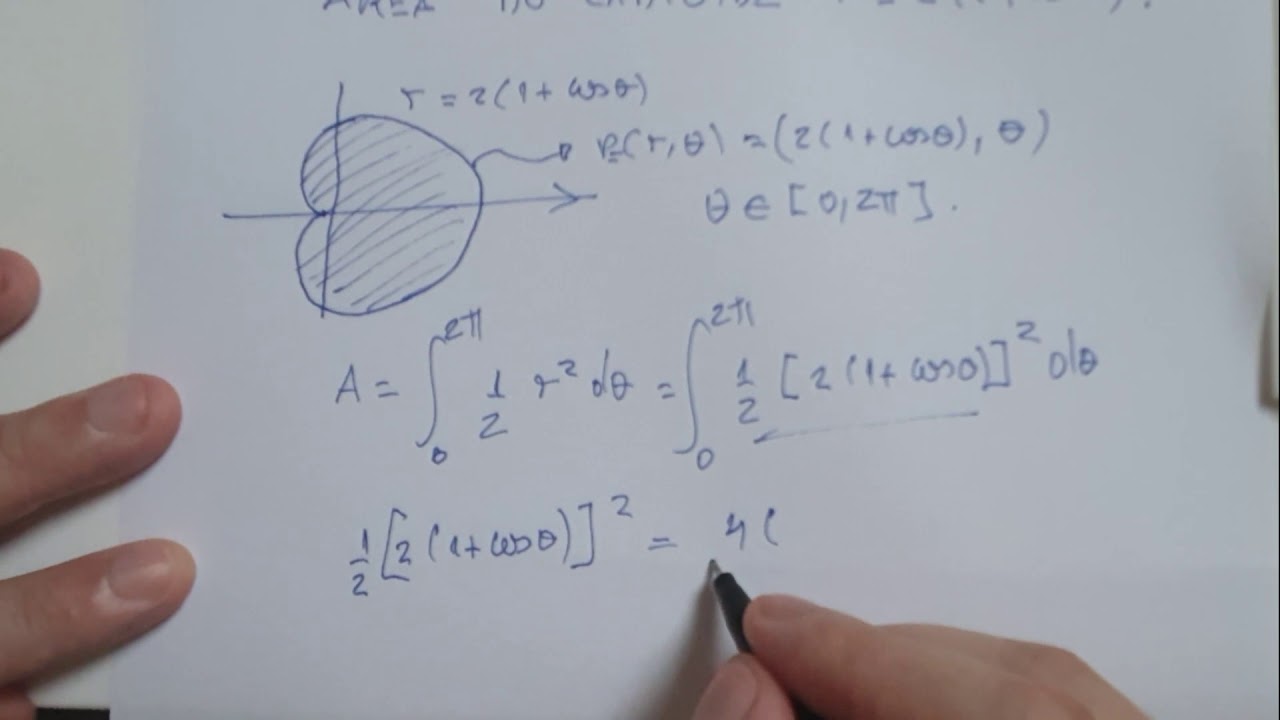 r = 2(1+cosθ)
P(r,θ) = (2(1+cosθ), θ)
θ ∈ [0,2π].
A = ∫₀^2π 1/2 r² dθ = ∫₀^2π 1/2 [2(1+cosθ)]² dθ
1/2 [2(1+cosθ)]² = 4(